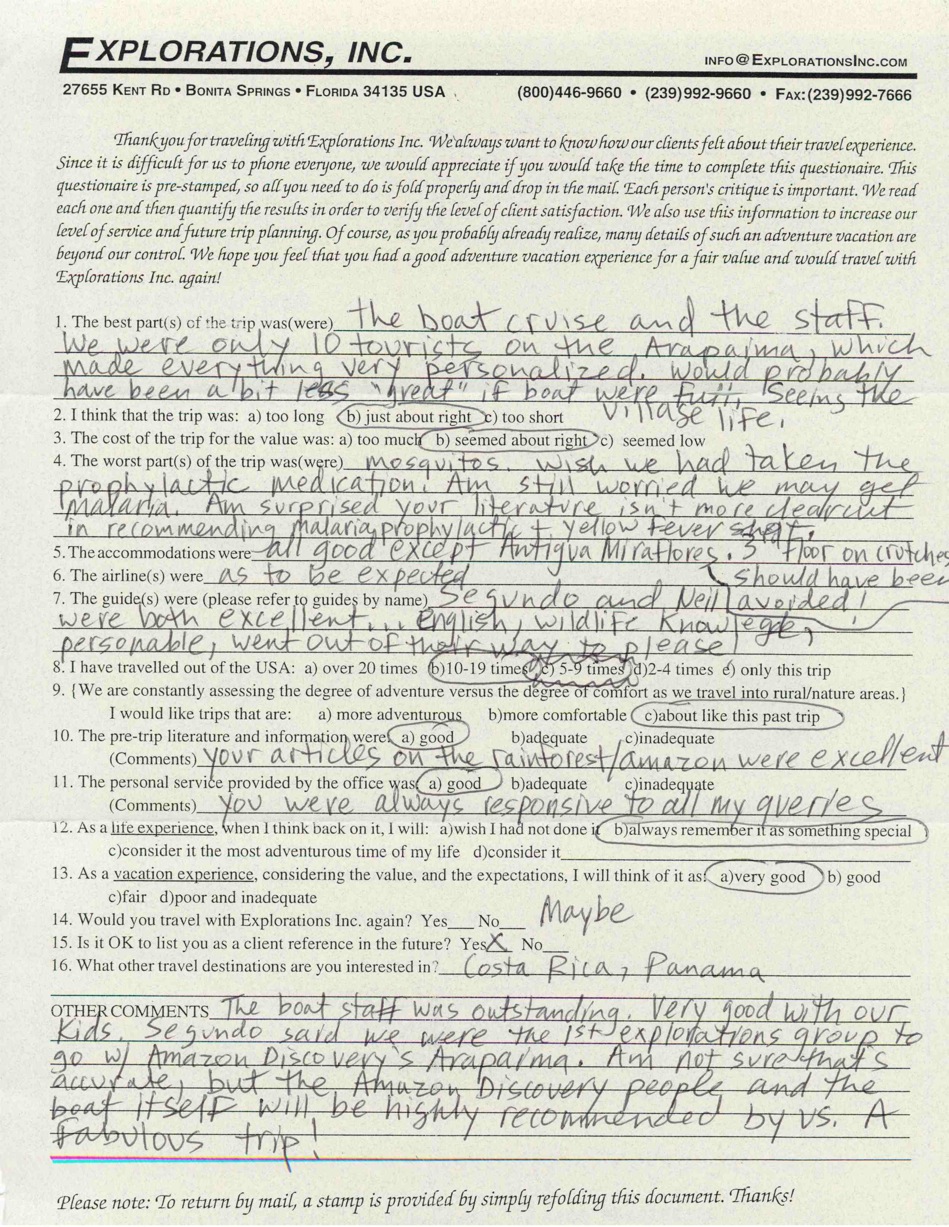 EXPLORATIONS, INC.
INFO@EXPLORATIONSINC.COM
27655 KENT RD • BONITA SPRINGS • FLORIDA 34135 USA (800)446-9660 • (239)992-9660 • FAX:(239)992-7666
Thank you for traveling with Explorations Inc. We always want to know how our clients felt about their travel experience.
Since it is difficult for us to phone everyone, we would appreciate if you would take the time to complete this questionaire. This
questionaire is pre-stamped, so all you need to do is fold properly and drop in the mail. Each person's critique is important. We read
each one and then quantify the results in order to verify the level of client satisfaction. We also use this information to increase our
level of service and future trip planning. Of course, as you probably already realize, many details of such an adventure vacation are
beyond our control. We hope you feel that you had a good adventure vacation experience for a fair value and would travel with
Explorations Inc. again!
1. The best part(s) of the trip was(were) the boat cruise and the staff.
We were only 10 tourists on the Arapaima, which
made everything very personalized. Would probably
have been a bit less "great" if boat were full. Seeing the
village life.
2. I think that the trip was: a) too long b) just about right c) too short
3. The cost of the trip for the value was: a) too much b) seemed about right c) seemed low
4. The worst part(s) of the trip was(were) mosquitos. Wish we had taken the
prophylactic medication! Am still worried we may get
malaria. Am surprised your literature isn't more clearcut
in recommending malaria prophylactic + yellow fever shot.
5. The accommodations were all good except Antigua Miraflores. 3rd floor on crutches
should have been
avoided!
6. The airline(s) were as to be expected
7. The guide(s) were (please refer to guides by name) Segundo and Neil
were both excellent... English, wildlife knowlege,
personable, went out of their way to please!
8. I have travelled out of the USA: a) over 20 times b)10-19 times c) 5-9 times d)2-4 times e) only this trip
9. {We are constantly assessing the degree of adventure versus the degree of comfort as we travel into rural/nature areas.}
I would like trips that are: a) more adventurous b)more comfortable c)about like this past trip
10. The pre-trip literature and information were: a) good b)adequate c)inadequate
(Comments) your articles on the rainforest/amazon were excellent
11. The personal service provided by the office was: a) good b)adequate c)inadequate
(Comments) you were always responsive to all my queries
12. As a life experience, when I think back on it, I will: a)wish I had not done it b)always remember it as something special
c)consider it the most adventurous time of my life d)consider it
13. As a vacation experience, considering the value, and the expectations, I will think of it as: a)very good b) good
c)fair d)poor and inadequate
14. Would you travel with Explorations Inc. again? Yes___ No___ Maybe
15. Is it OK to list you as a client reference in the future? Yes X No___
16. What other travel destinations are you interested in? Costa Rica, Panama
OTHER COMMENTS The boat staff was outstanding. Very good with our
kids. Segundo said we were the 1st explorations group to
go w/ Amazon Discovery's Arapaima. Am not sure that's
accurate, but the Amazon Discovery people and the
boat itself will be highly recommended by us. A
fabulous trip!
Please note: To return by mail, a stamp is provided by simply refolding this document. Thanks!